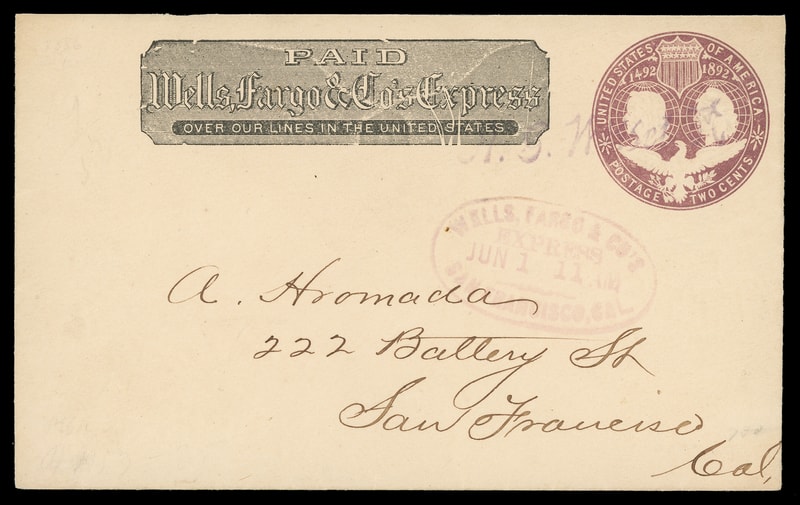 PAID
Wells, Fargo & Co's Express
OVER OUR LINES IN THE UNITED STATES
UNITED STATES OF AMERICA
1492 1892
POSTAGE TWO CENTS
WELLS, FARGO & CO'S
EXPRESS
JUN 1 11 AM
SAN FRANCISCO, CAL.
A. Hromada
222 Battery St
San Francisco
Cal,